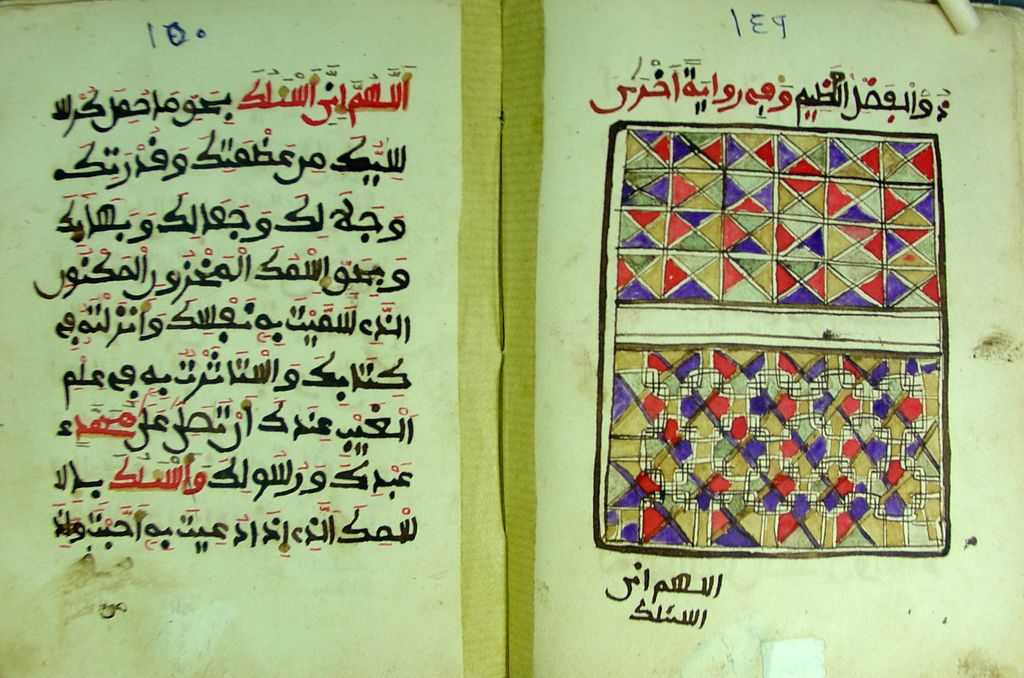 ١٤٩
ذو الفضل العظيم وفي رواية اخرى
اللهم اني
اسئلك
١٥٠
اللهم اني اسئلك بحق ما حمل كر
سيك من عظمتك وقدرتك
وجلالك وجمالك وبهائك
وبحق اسمك المخزون المكنون
الذي سميت به نفسك وانزلته في
كتابك واستاثرت به في علم
الغيب عندك ان تصلي على محمد
عبدك ورسولك واسئلك بالا
سمك الذي اذا دعيت به اجبت واذا